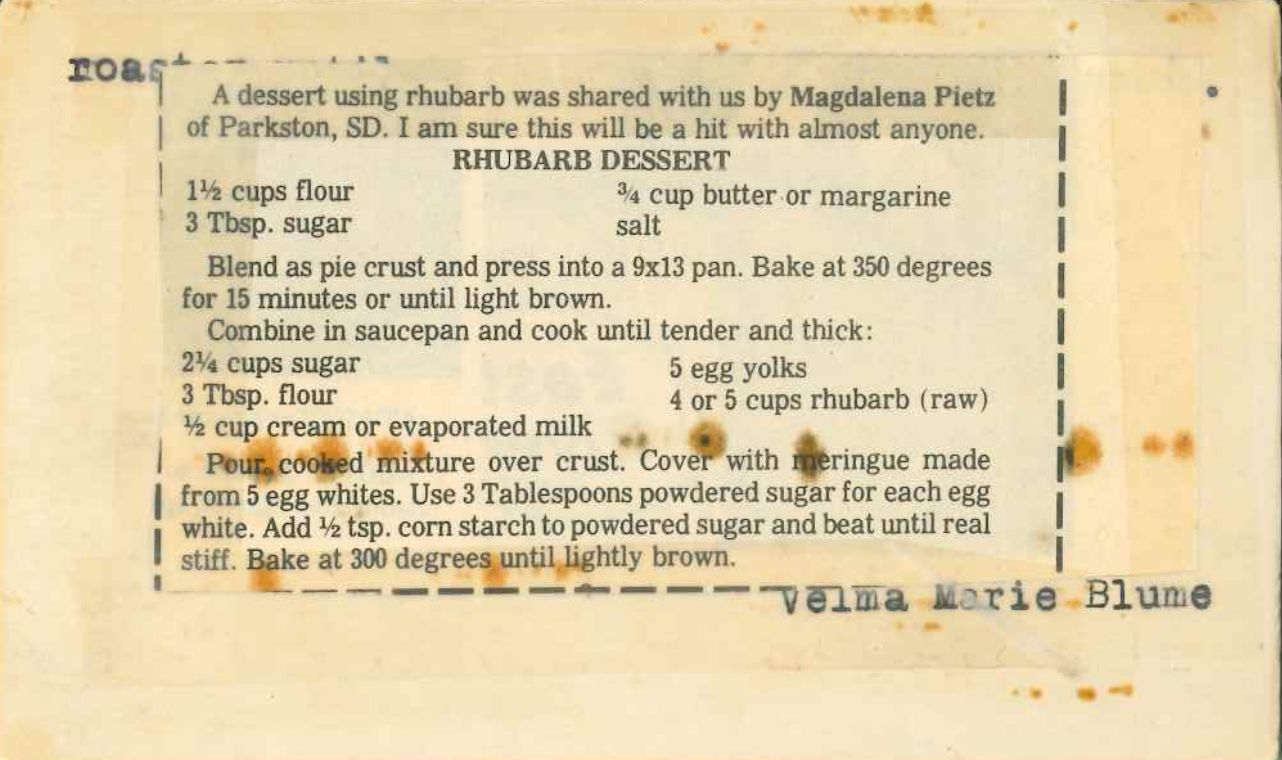 A dessert using rhubarb was shared with us by Magdalena Pietz
of Parkston, SD. I am sure this will be a hit with almost anyone.
RHUBARB DESSERT
1½ cups flour ¾ cup butter or margarine
3 Tbsp. sugar salt
Blend as pie crust and press into a 9x13 pan. Bake at 350 degrees
for 15 minutes or until light brown.
Combine in saucepan and cook until tender and thick:
2¼ cups sugar 5 egg yolks
3 Tbsp. flour 4 or 5 cups rhubarb (raw)
½ cup cream or evaporated milk
Pour cooked mixture over crust. Cover with meringue made
from 5 egg whites. Use 3 Tablespoons powdered sugar for each egg
white. Add ½ tsp. corn starch to powdered sugar and beat until real
stiff. Bake at 300 degrees until lightly brown.
Velma Marie Blume